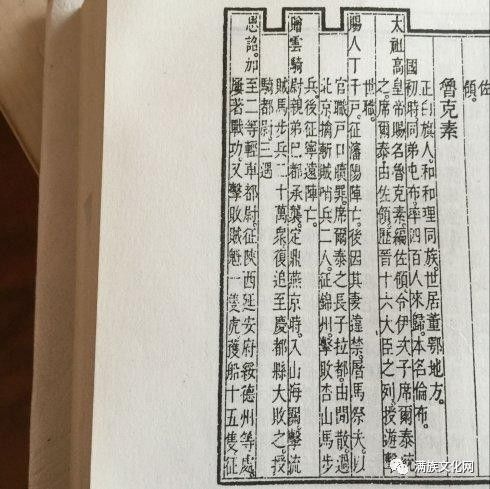 佐
領。
魯克素
正白旗人。和和理同族。世居董鄂地方。
國初時同弟屯布。率四百人來歸。本名倫布。
太祖高皇帝賜名魯克素。編佐領。令伊次子席爾泰統
之。席爾泰由佐領歷晉十六大臣之列。授遊擊
世職。
賜人丁千戶。征瀋陽陣亡。後因其妻違禁。屠馬祭夫。以
官職戶口贖罪。席爾泰之長子拉都。由閒散。過
北京擒斬賊哨兵二人。征錦州。擊敗杏山馬步
兵。後征寧遠陣亡。
贈雲騎尉。親弟巴都承襲。定鼎燕京時。入山海關擊流
賊馬步兵二十萬眾。復追至慶都縣大敗之。授
騎都尉。三遇
恩詔。加至二等輕車都尉。征陝西延安府綏德州等處。
屢著戰功。又擊敗賊魁一隻虎。獲船十五隻。征
满族文化网